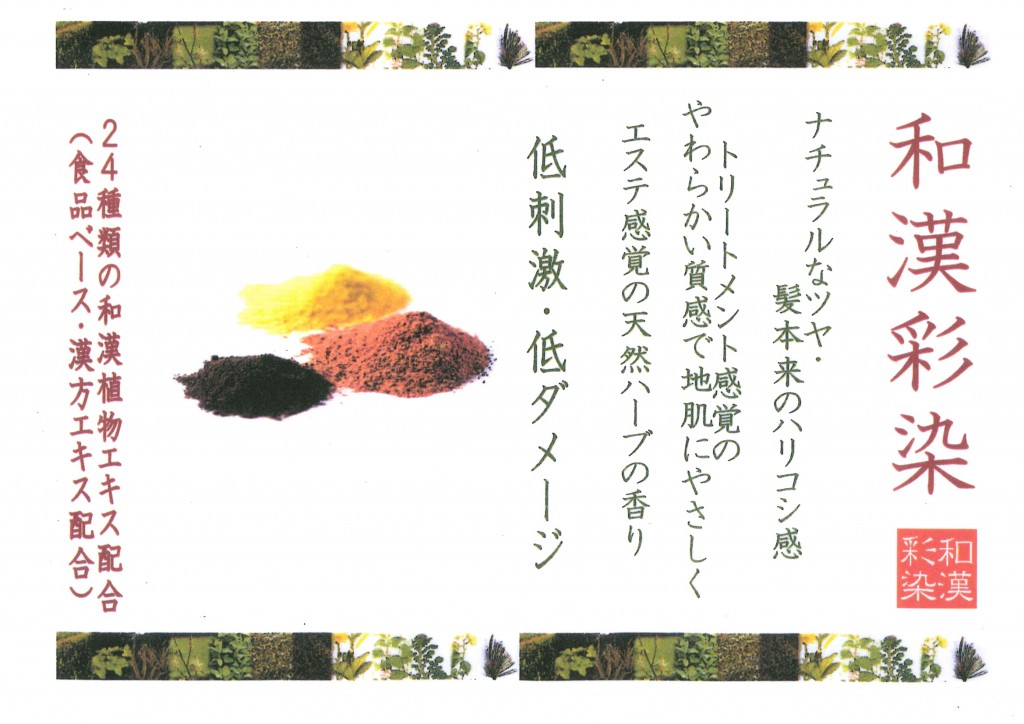 和漢彩染
和漢
彩染
ナチュラルなツヤ・
髪本来のハリコシ感
トリートメント感覚の
やわらかい質感で地肌にやさしく
エステ感覚の天然ハーブの香り
低刺激・低ダメージ
24種類の和漢植物エキス配合
(食品ベース・漢方エキス配合)